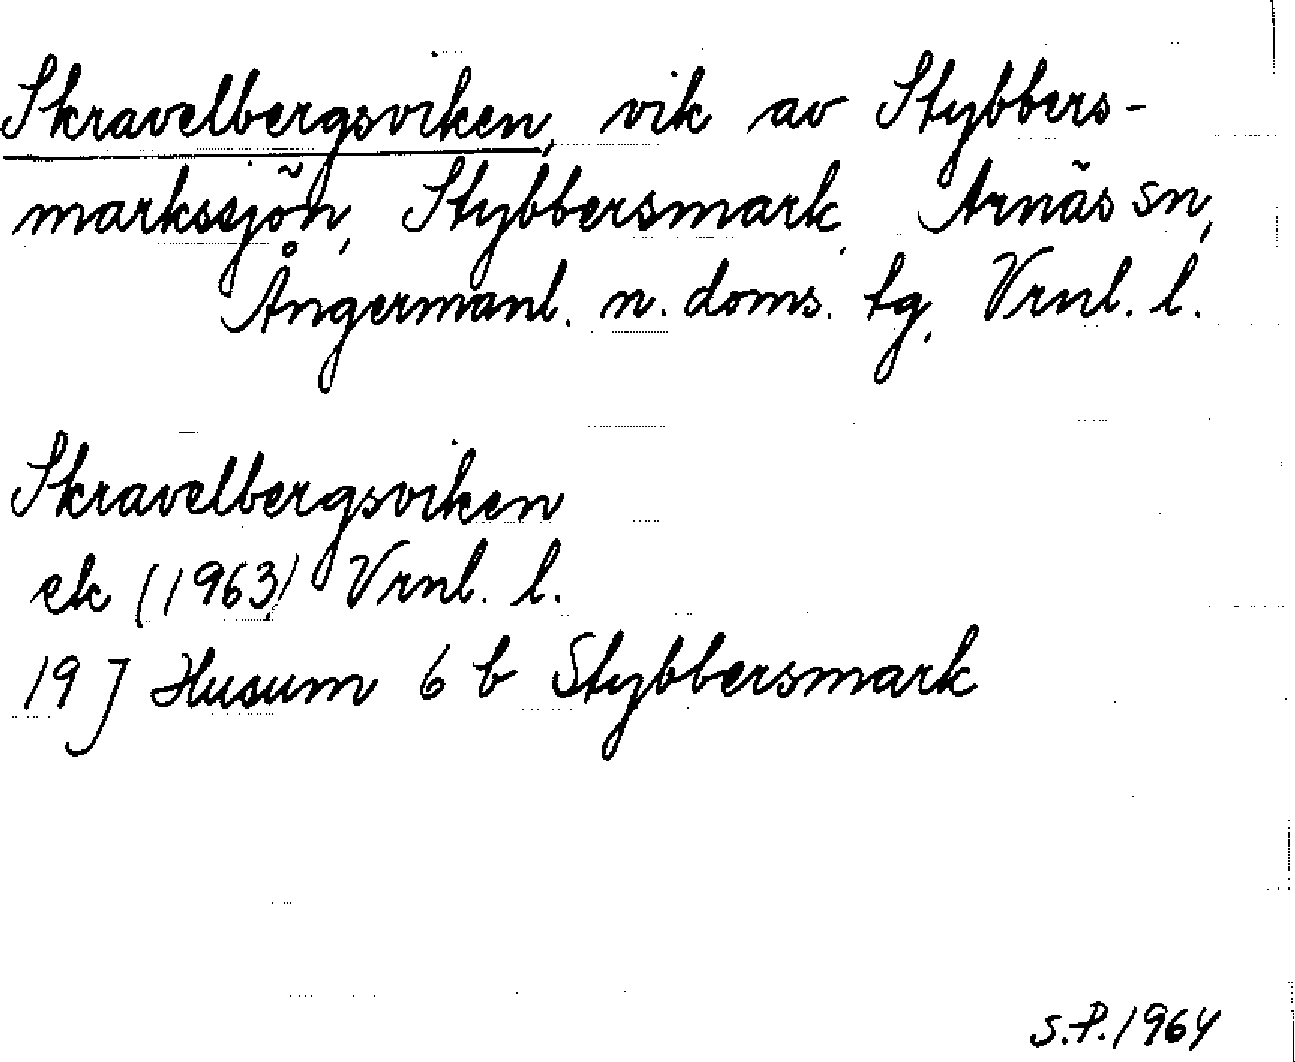 Skravelbergsviken, vik av Stybbers-
markssjön, Stybbersmark, Arnäs sn,
Ångermanl. n. doms. tg, Vrnl. l.
Skravelbergsviken
ek (1963) Vrnl. l.
19 J Husum 6 b Stybbersmark
S.P. 1964